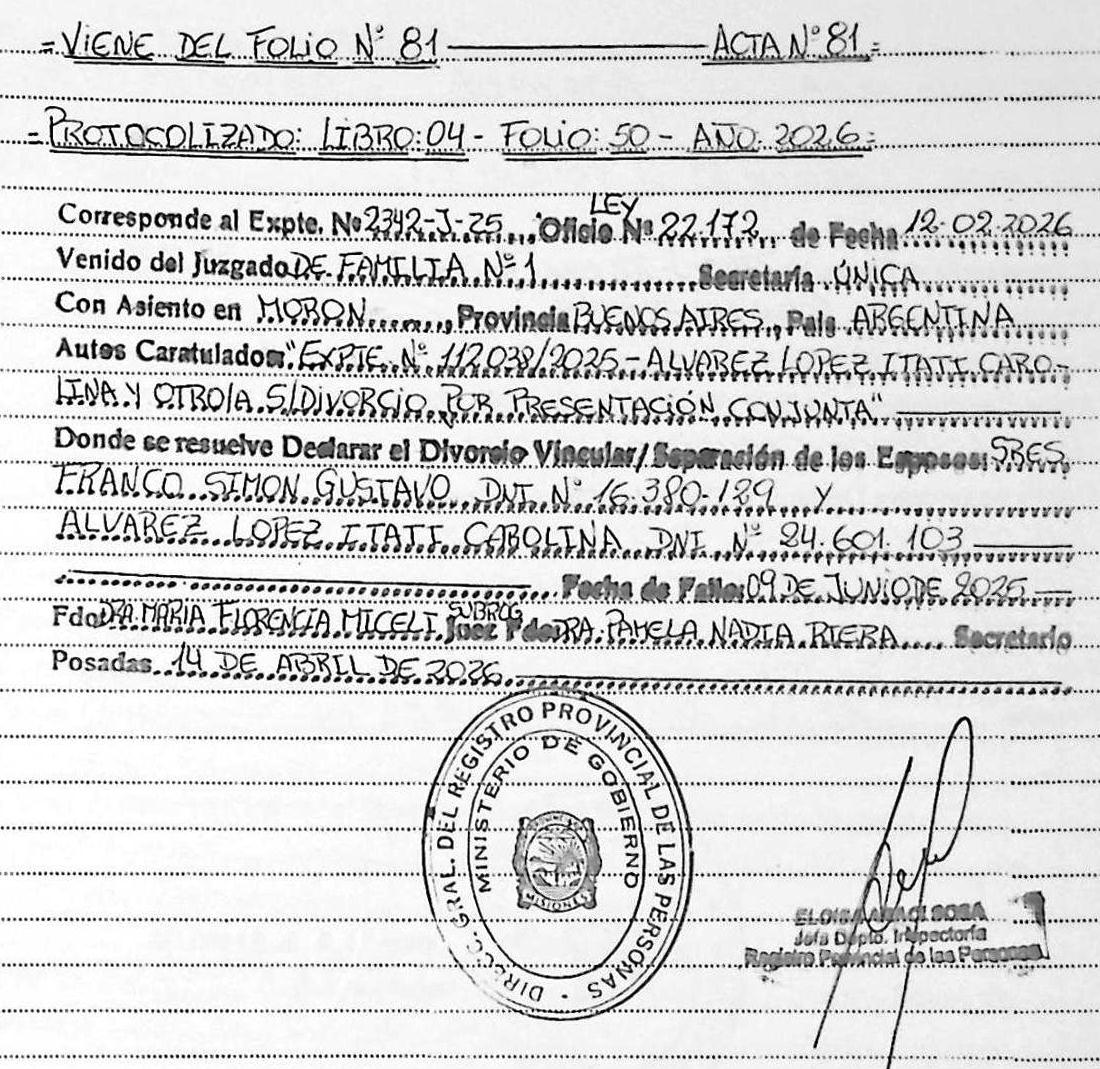 =VIENE DEL FOLIO Nº 81 ——— ACTA Nº 81=
=PROTOCOLIZADO: LIBRO: 04 - FOLIO: 50 - AÑO: 2026=
LEY
Corresponde al Expte. Nº 2342-J-25... Oficio Nº 22.172... de Fecha 12-02-2026
Venido del Juzgado DE FAMILIA Nº 1 Secretaría ÚNICA
Con Asiento en MORON, Provincia BUENOS AIRES, País ARGENTINA
Autos Caratulados: "EXPTE. Nº 112.038/2025 - ALVAREZ LOPEZ ITATI CARO-
LINA Y OTRO/A S/DIVORCIO POR PRESENTACIÓN CONJUNTA" ———
Donde se resuelve Declarar el Divorcio Vincular/Separación de los Esposos: SRES.
FRANCO SIMON GUSTAVO DNI Nº 16.380.129 Y
ALVAREZ LOPEZ ITATI CAROLINA DNI Nº 24.601.103 ———
Fecha de Fallo: 09 DE JUNIO DE 2025 —
SUBROG
Fdo DRA. MARIA FLORENCIA MICELI Juez Fdo DRA. PAMELA NADIA RIERA.... Secretario
Posadas 14 DE ABRIL DE 2026
DIRECC. GRAL. DEL REGISTRO PROVINCIAL DE LAS PERSONAS
MINISTERIO DE GOBIERNO
MISIONES
SOSA
Jefa Dpto. Inspectoría
Registro Provincial de las Personas